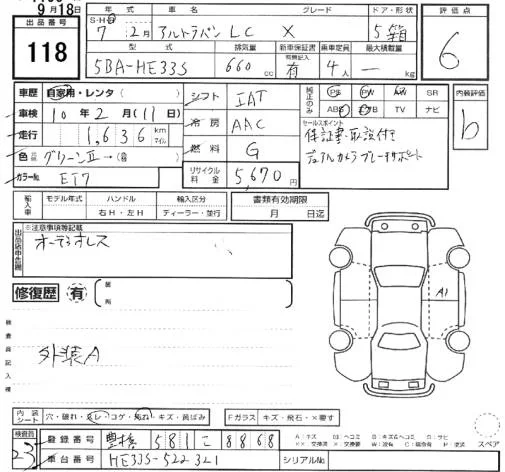 9月18日
出品番号 118
年式 車名 グレード ドア・形状 評価点
S・H・R 7 : 2月 アルトラパン LC X 5 箱 6
型式 排気量 新車保証書 乗車定員 最大積載量
5BA-HE33S 660 cc 有 4人 — kg
車歴 自家用・レンタ( ) シフト IAT 純正のみ PS PW AW SR 内装評価
車検 10年 2月(11日) 冷房 AAC ABS エアB TV ナビ b
走行 1,636 km マイル 燃料 G セールスポイント
保証書・取説付
デュアルカメラブレーキサポート
色 元色 グリーンⅡ→( 替) リサイクル料金 5,670円
カラーNo. E77
輸入車 モデル年式 ハンドル 輸入区分 書類有効期限
右H・左H ディーラー・並行 月 日迄
出品店申告欄 ※注意事項等記載
オーディオレス
修復歴 有 箇所
A1
検査員記入欄
外装A
内装シート 穴・破れ・シミ・コゲ・汚れ・キズ・黄ばみ Fガラス キズ・飛石・×要す
検査員 23 登録番号 豊橋 581 こ 8868 スペア
車台番号 HE33S-522321 シリアルNo.